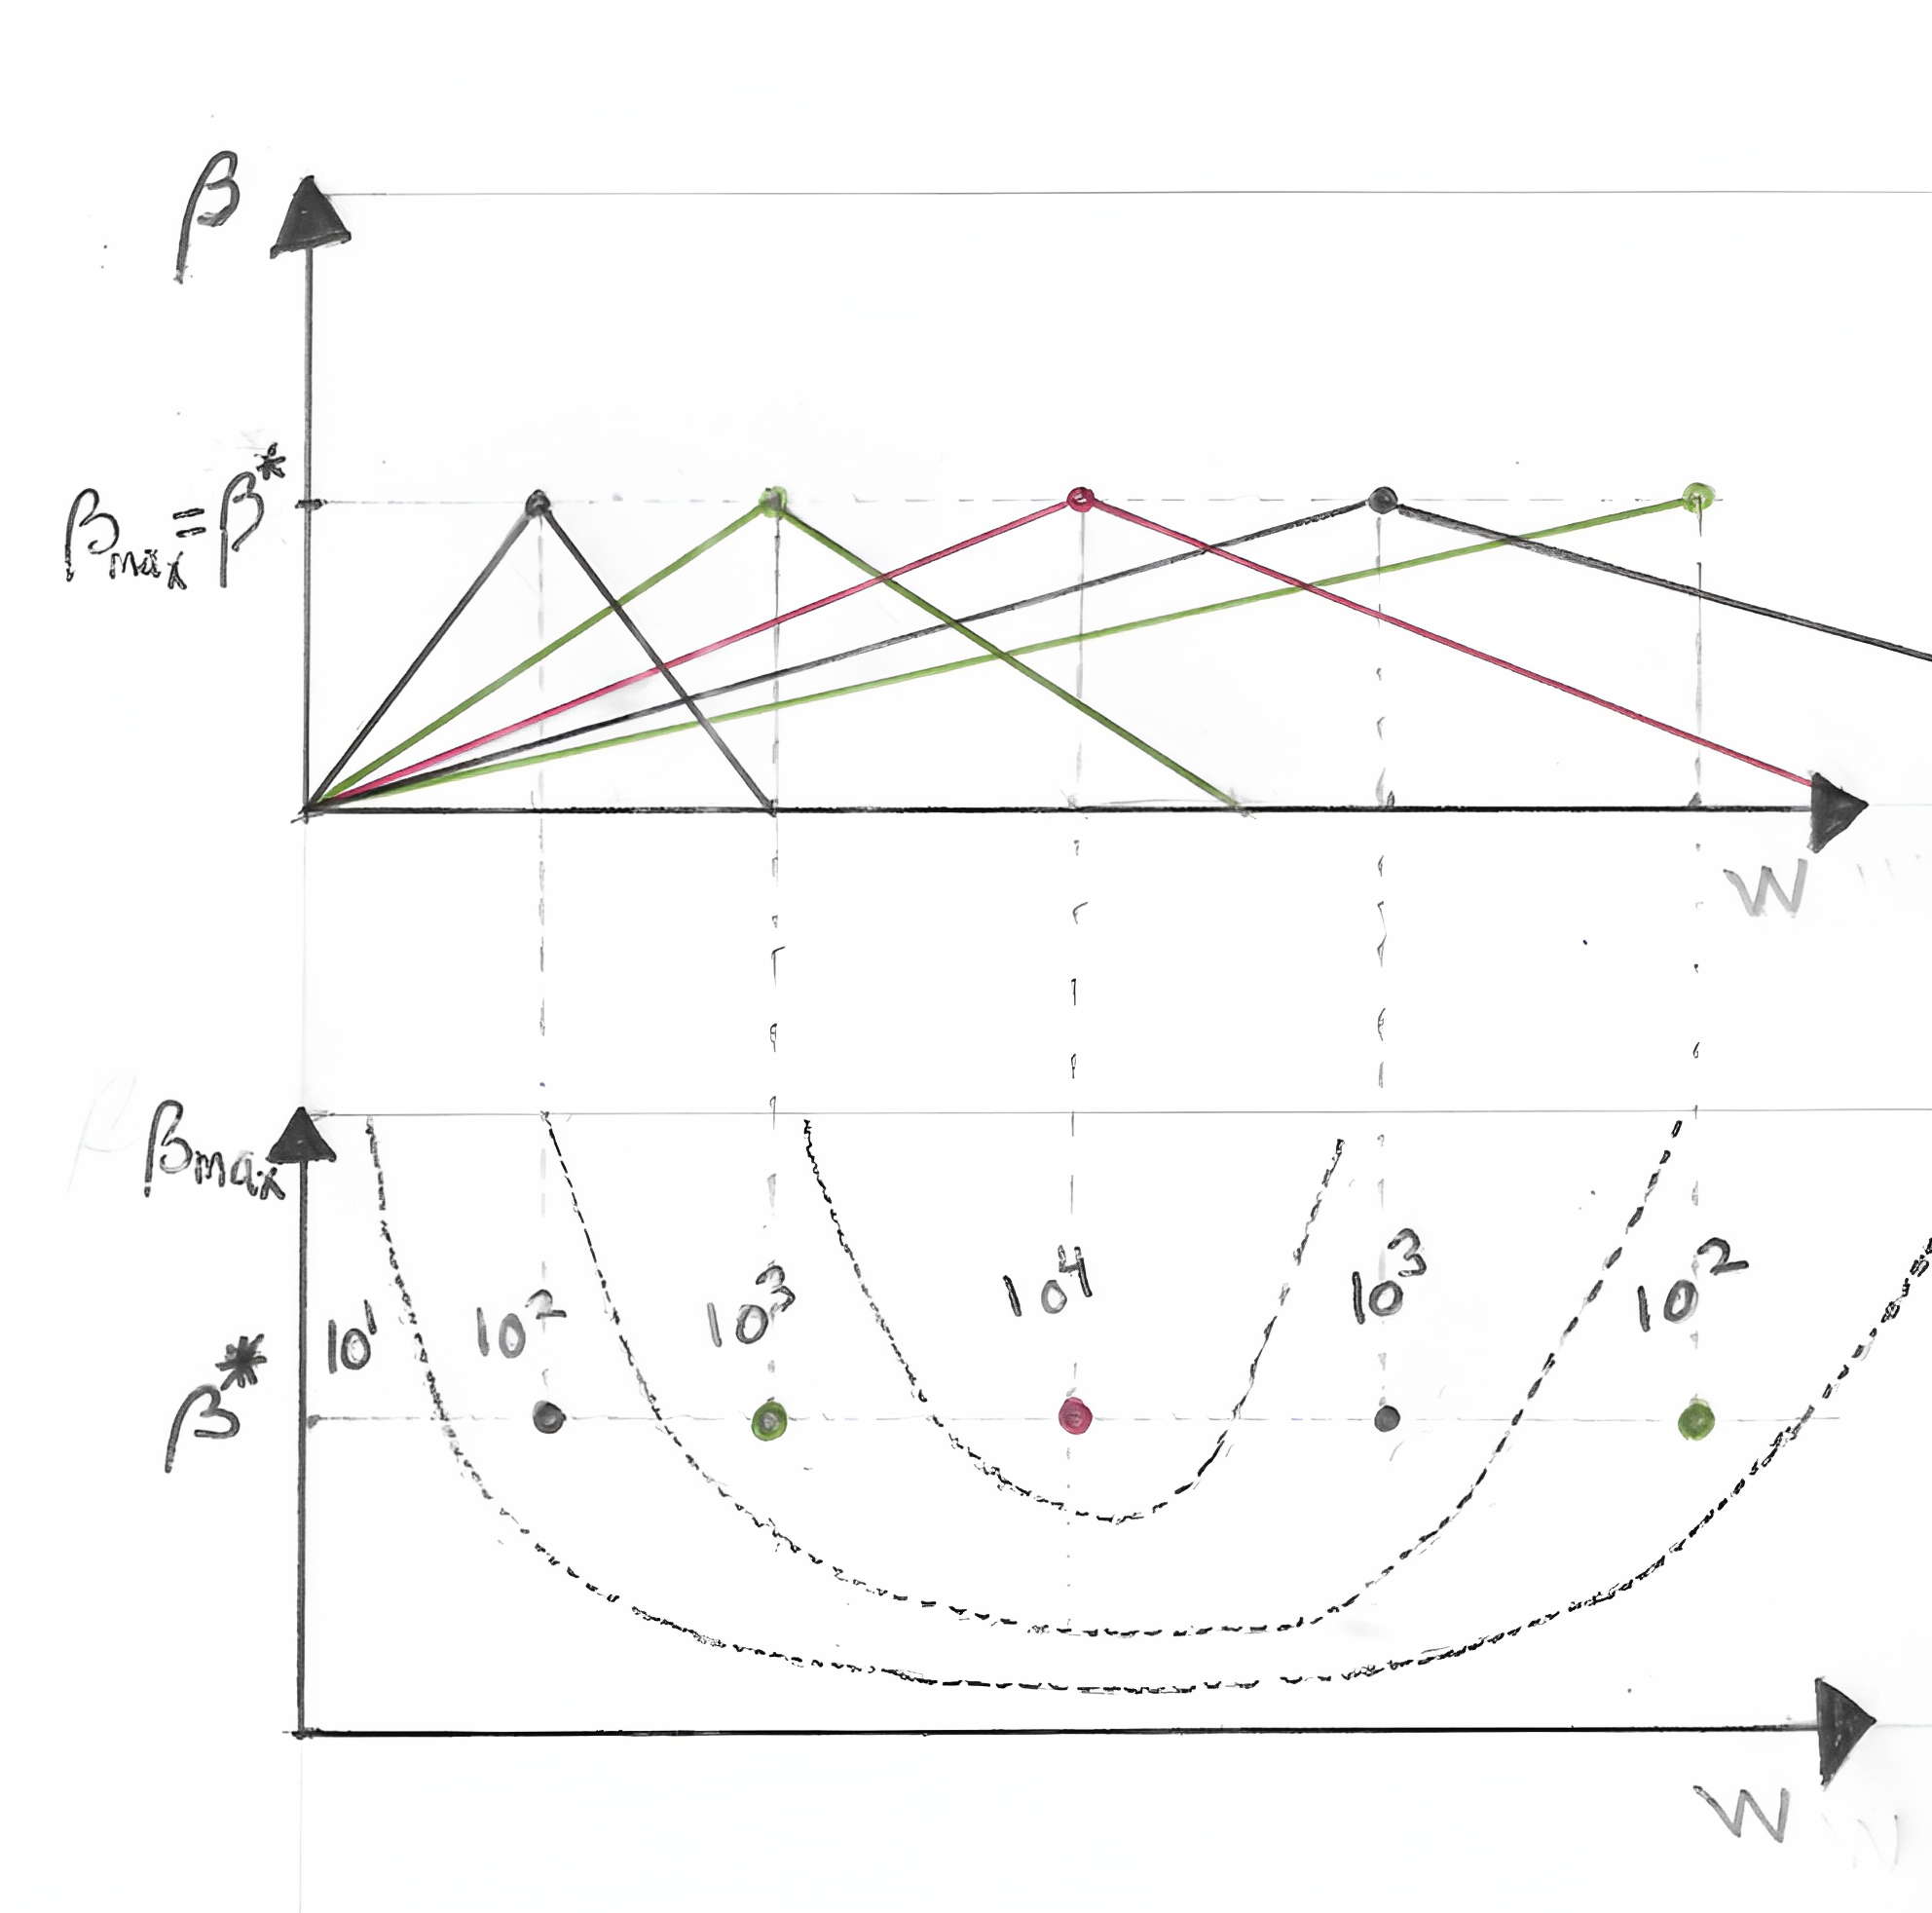 β
βmax = β*
W
βmax
10¹ 10² 10³ 10⁴ 10³ 10²
β*
W